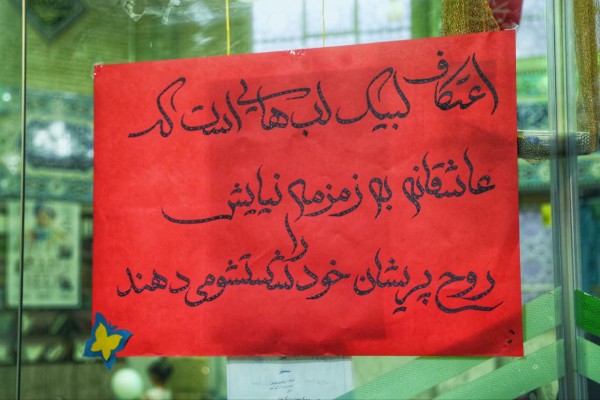 اعتکاف لبیک لب هایی است که
عاشقانه به زمزمه نیایش
را
روح پریشان خود شستشو می دهند